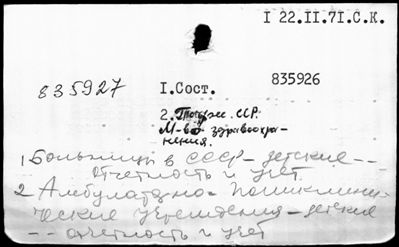 I 22.II.71.С.К.
835927
I.Сост.
835926
2. Таджс. ССР.
М-во здравоохра-
нения.
1 Больницы в СССР - детские --
отчетность и учет
2 Амбулаторно - поликлини-
ческие учреждения - детские
-- отчетность и учет